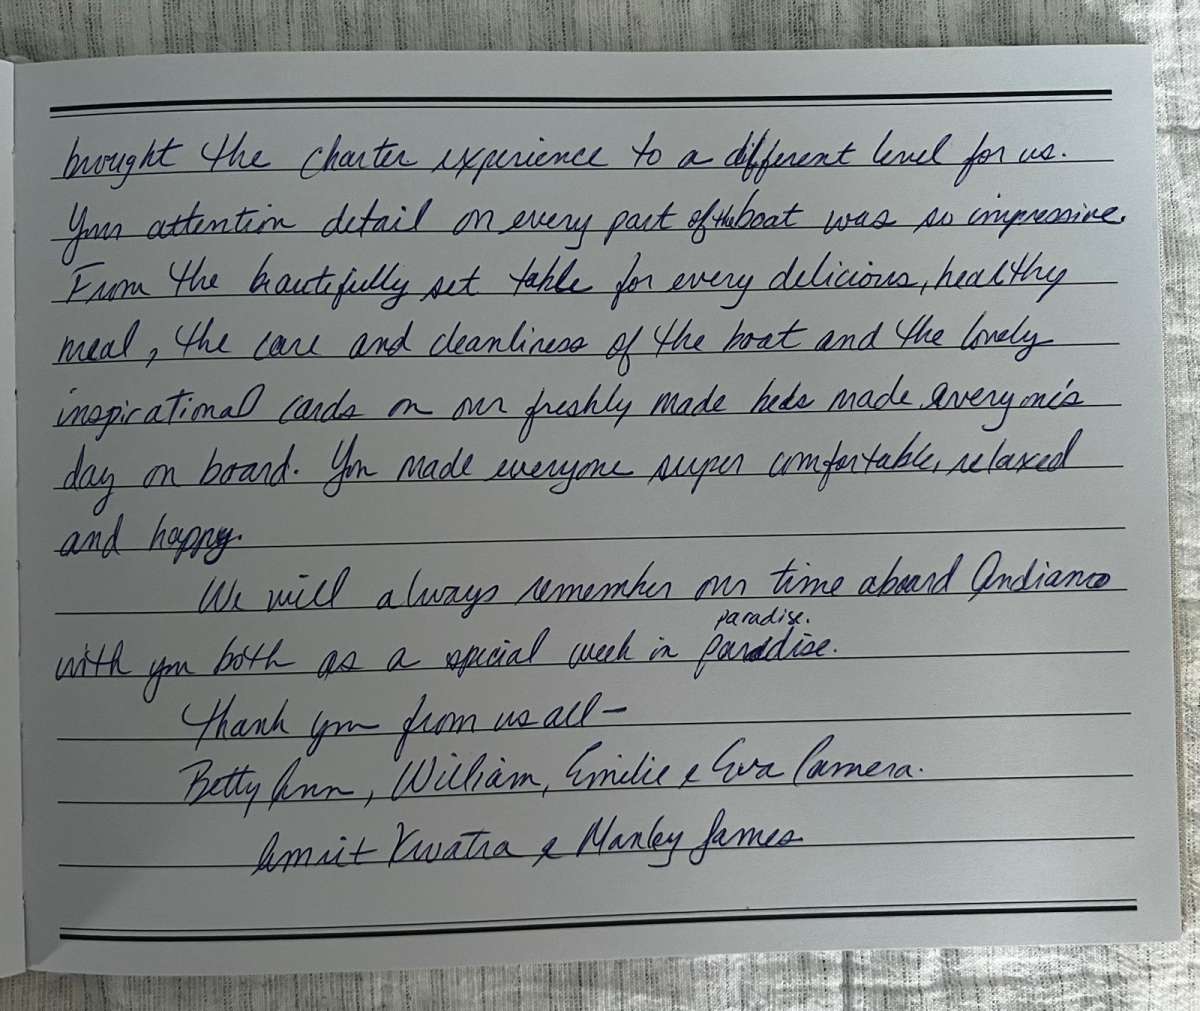 brought the charter experience to a different level for us.
Your attention detail on every part of the boat was so impressive.
From the beautifully set table for every delicious, healthy
meal, the care and cleanliness of the boat and the lovely
inspirational cards on our freshly made beds made everyone's
day on board. You made everyone super comfortable, relaxed
and happy.
We will always remember our time aboard Andiamo
paradise.
with you both as a special week in paradise.
Thank you from us all-
Betty Ann, William, Emilie & Eva Camera.
Amrit Kwatra & Manley James